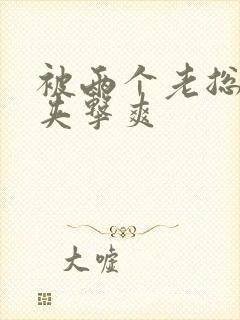 被两个老总
夹击爽
大嘘